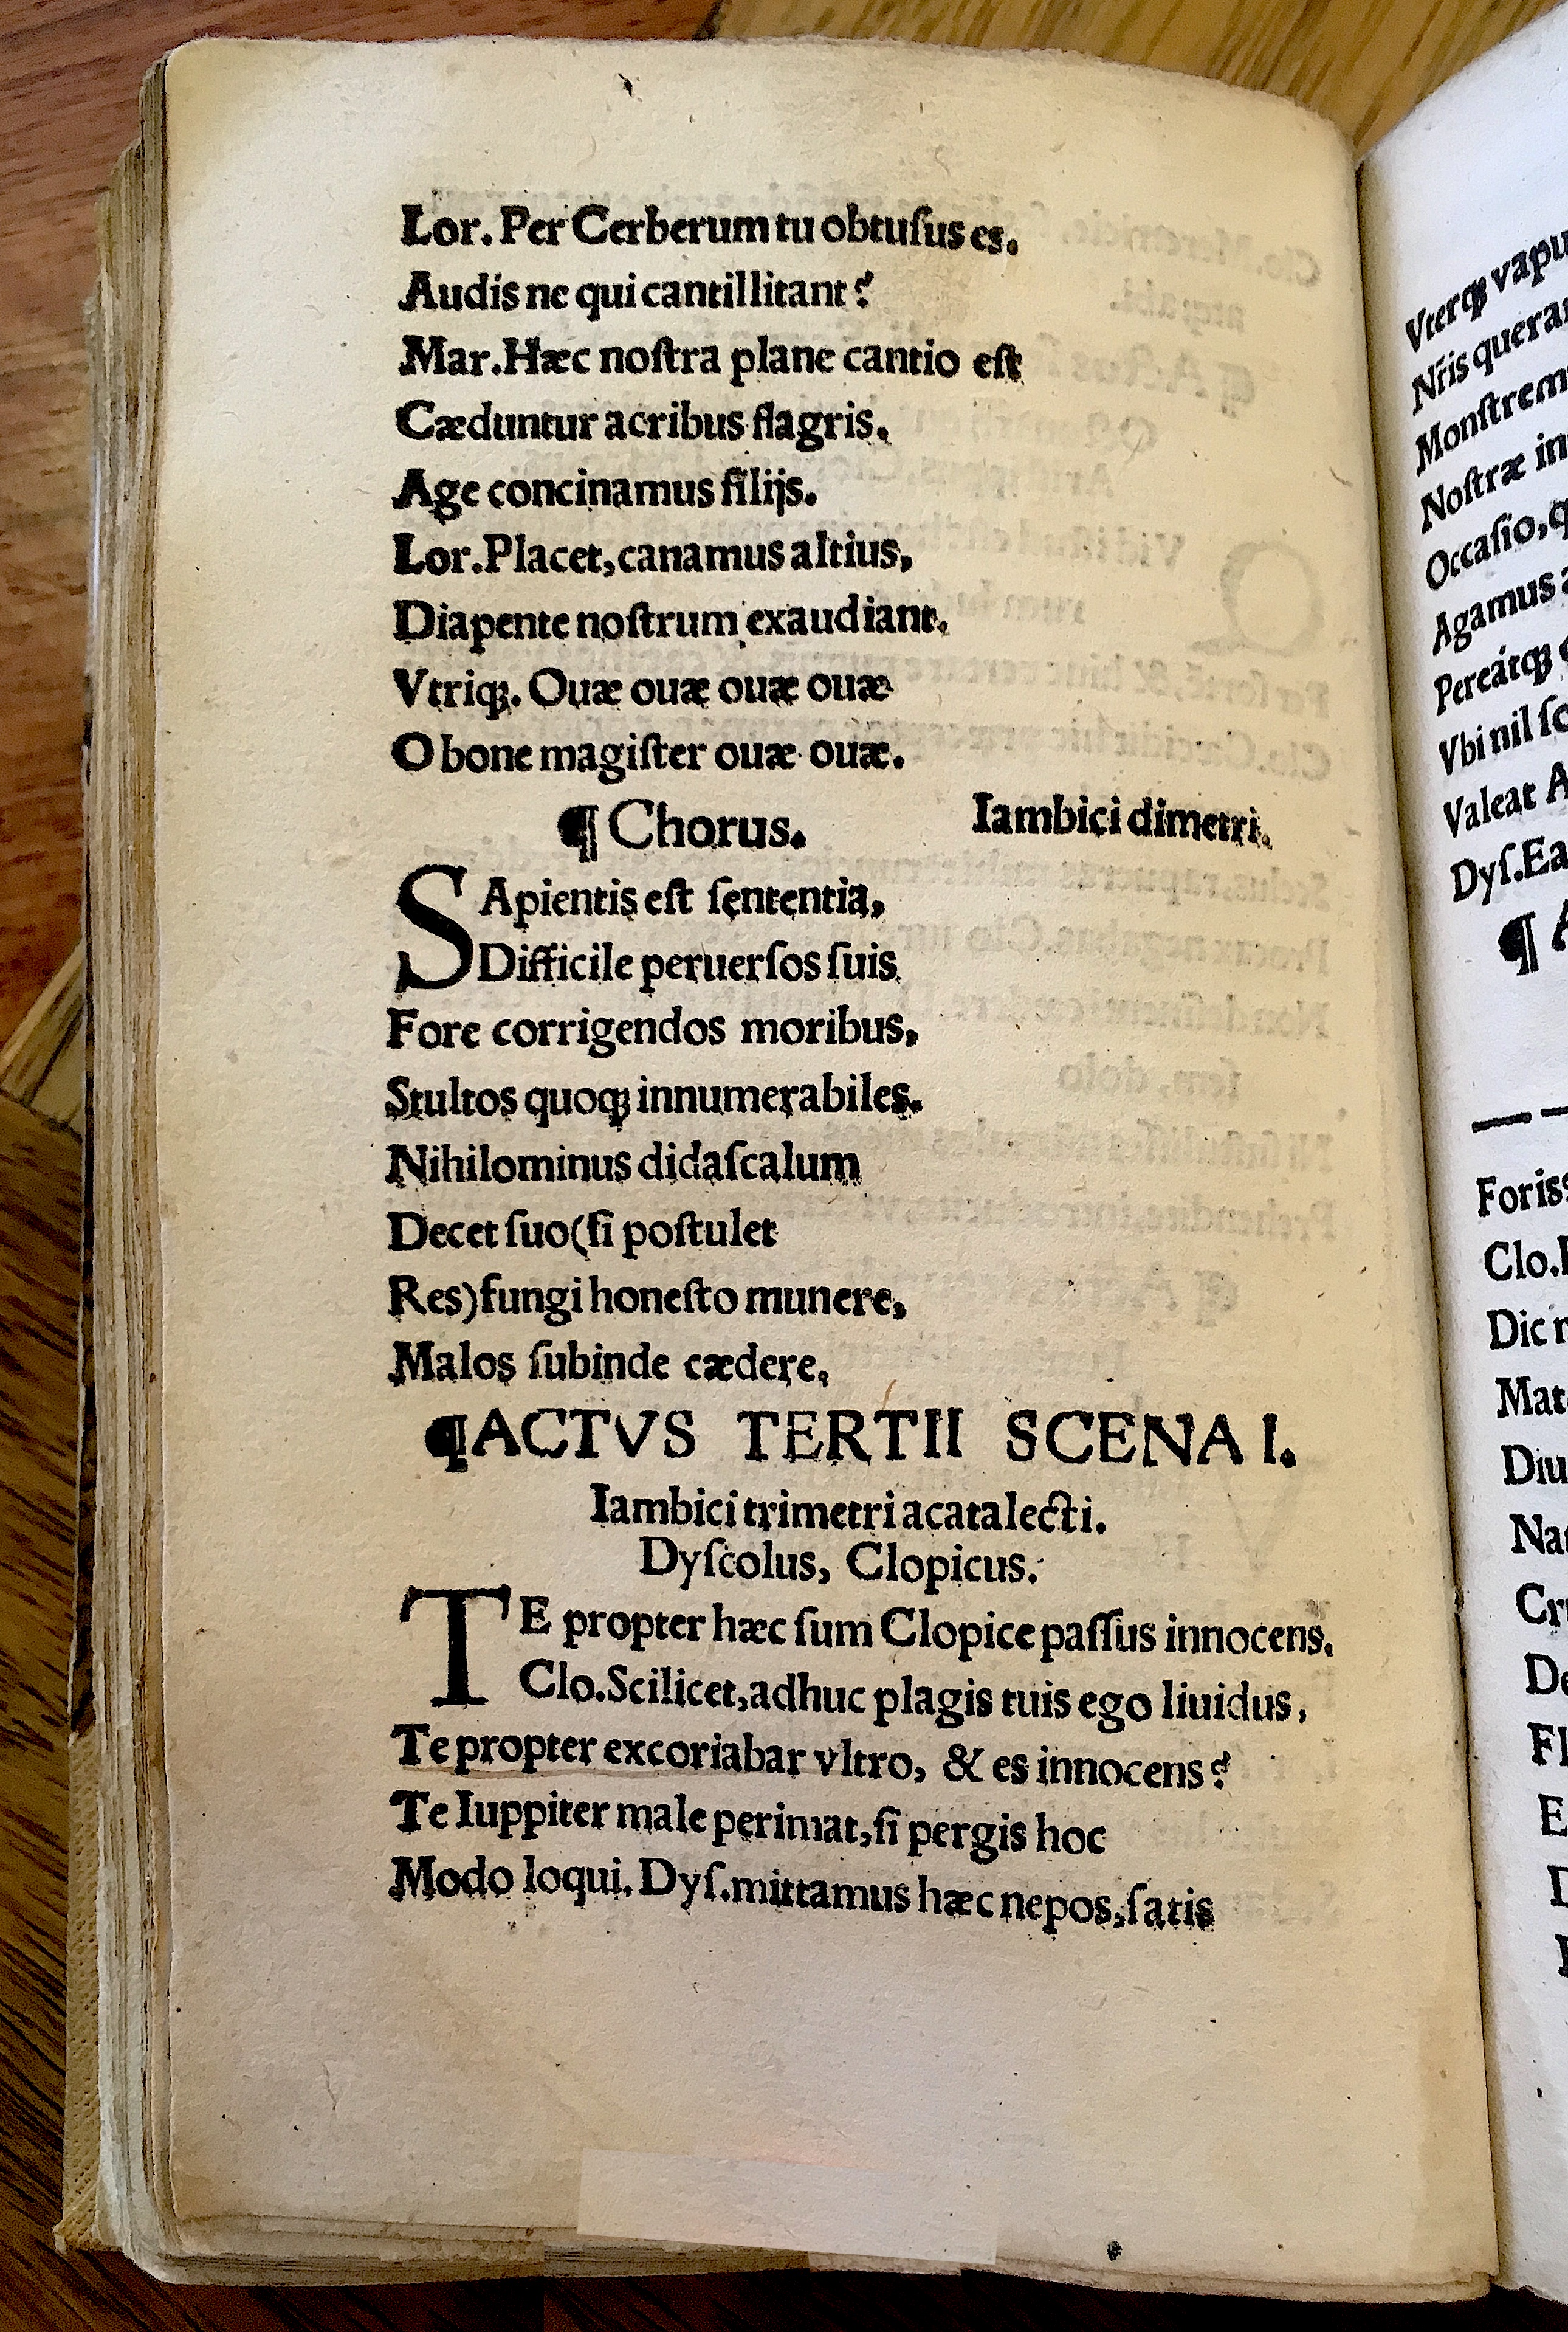 Lor. Per Cerberum tu obtuſus es.
Audis ne qui cantillitant?
Mar. Hæc noſtra plane cantio eſt
Cæduntur acribus flagris.
Age concinamus filijs.
Lor. Placet, canamus altius,
Diapente noſtrum exaudiant.
Vtriqꝫ. Ouæ ouæ ouæ ouæ
O bone magiſter ouæ ouæ.
¶ Chorus. Iambici dimetri.
SApientis eſt ſententia,
Difficile peruerſos ſuis
Fore corrigendos moribus,
Stultos quoqꝫ innumerabiles.
Nihilominus didaſcalum
Decet ſuo (ſi poſtulet
Res) fungi honeſto munere,
Malos ſubinde cædere.
¶ ACTVS TERTII SCENA I.
Iambici trimetri acatalecti.
Dyſcolus, Clopicus.
TE propter hæc ſum Clopice paſſus innocens.
Clo. Scilicet, adhuc plagis tuis ego liuidus,
Te propter excoriabar vltro, & es innocens?
Te Iuppiter male perimat, ſi pergis hoc
Modo loqui. Dyſ. mittamus hæc nepos, ſatis
Vterqꝫ
Nr̃is
Monſtrem
Noſtræ in
Occaſio,
Agamus
Pereátqꝫ
Vbi nil
Valeat
Dyſ. Ea
¶
Foris
Clo.
Dic
Mat
Diu